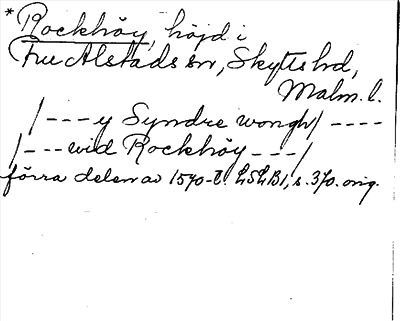 *Rockhöy, höjd i
Fru Alstads sn, Skytts hd,
Malm. l.
/---y Syndre wongh/----
/---wid Rockhöy---/
förra delen av 1570-t. LSLB1, s. 370. orig.